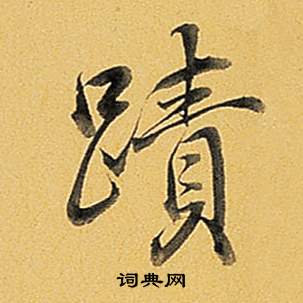 蹟
词典网